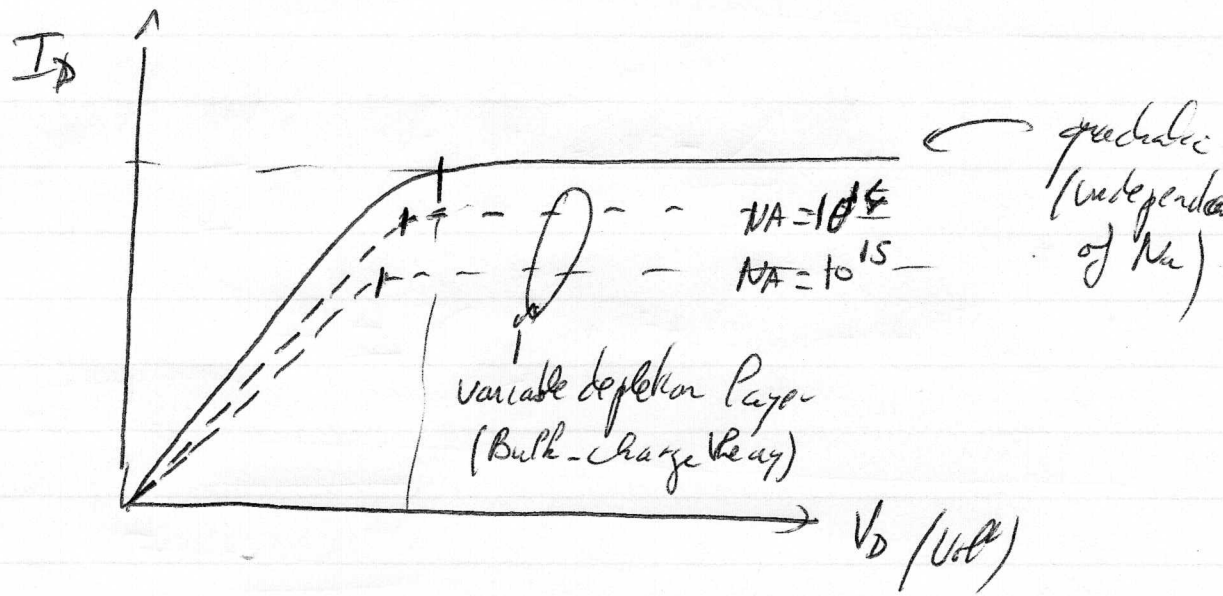 I_D
quadratic
(independent
of Na)
NA = 10
NA = 10^15
variable depletion layer
(Bulk-charge theory)
V_D (Volt)